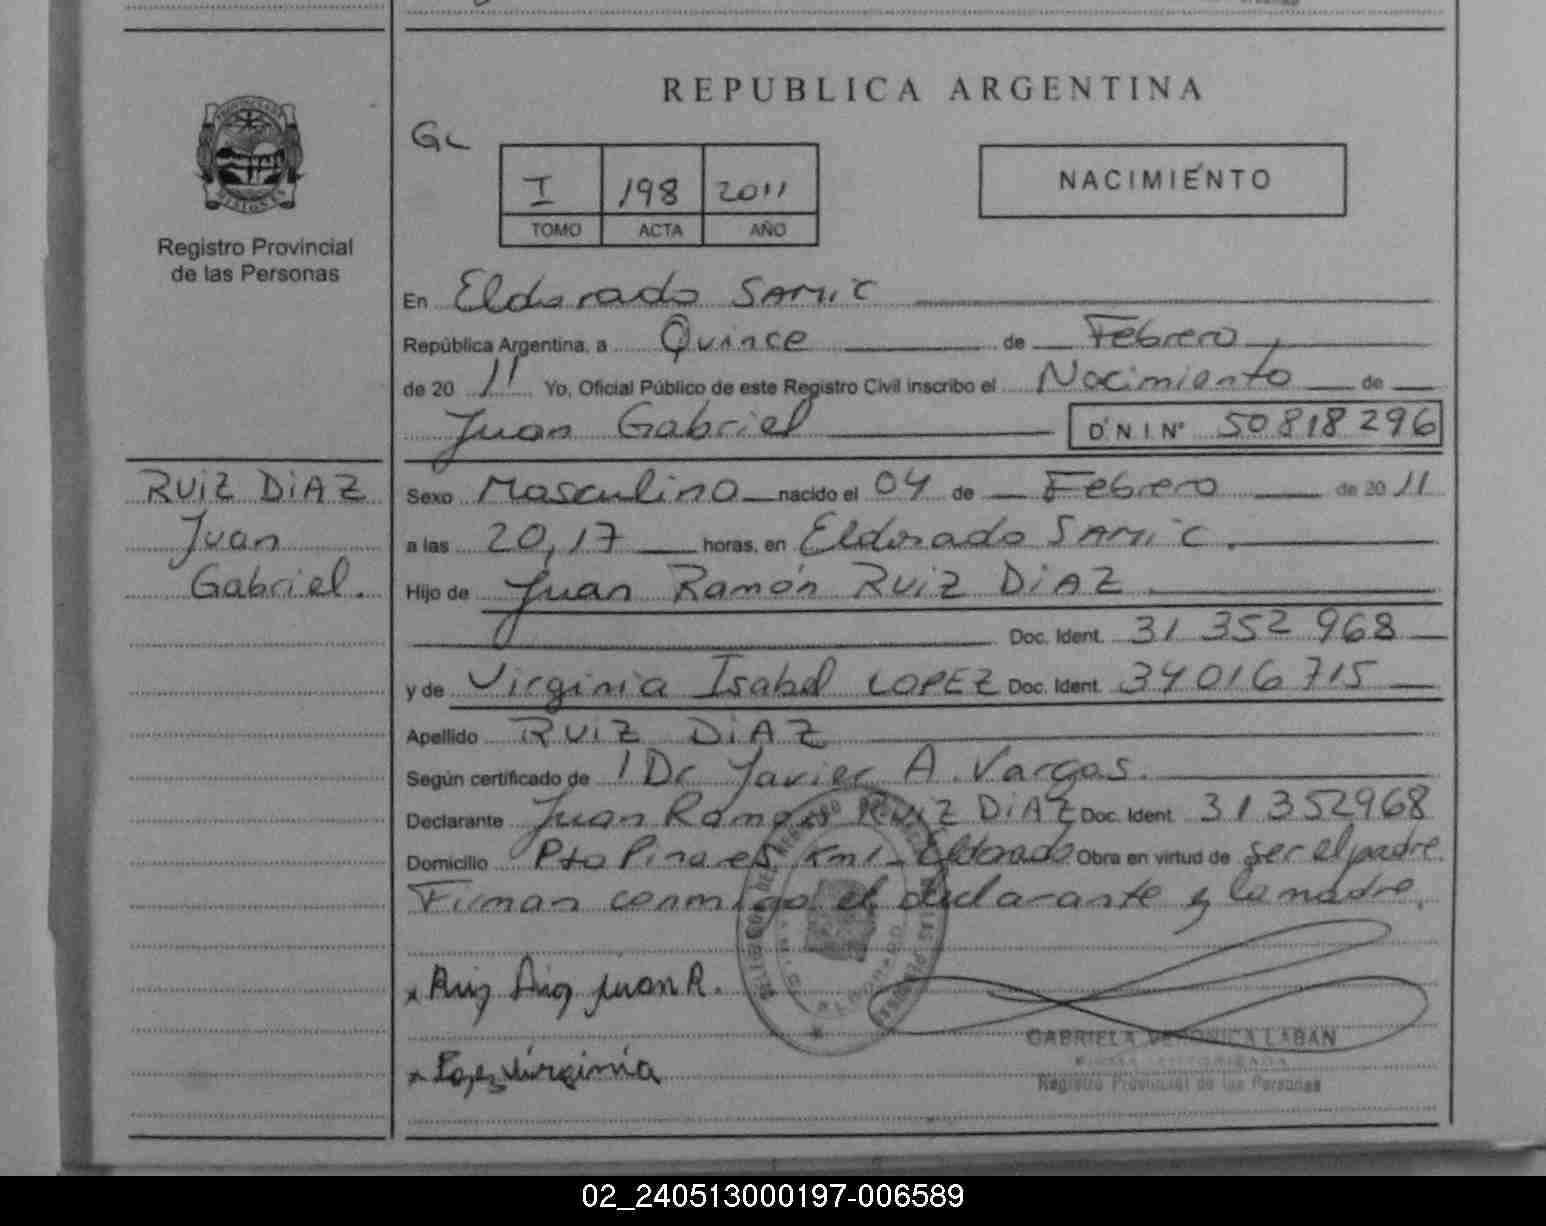 REPUBLICA ARGENTINA
GL
I 198 2011
TOMO ACTA AÑO
NACIMIENTO
Registro Provincial
de las Personas
En Eldorado SAMIC
República Argentina, a Quince de Febrero
de 2011 Yo, Oficial Público de este Registro Civil inscribo el Nacimiento de
Juan Gabriel D.N.I.Nº 50818296
RUIZ DIAZ
Juan
Gabriel.
Sexo Masculino nacido el 04 de Febrero de 2011
a las 20,17 horas, en Eldorado SAMIC.
Hijo de Juan Ramón RUIZ DIAZ
Doc. Ident. 31 352 968
y de Virginia Isabel LOPEZ Doc. Ident. 34016715
Apellido RUIZ DIAZ
Según certificado de Dr Javier A. Vargas.
Declarante Juan Ramón RUIZ DIAZ Doc. Ident. 31352968
Domicilio Pto Pinares Km1 Eldorado Obra en virtud de ser el padre.
Firman conmigo el declarante y la madre.
x Ruiz Diaz Juan R.
GABRIELA VERONICA LABAN
FIRMA AUTORIZADA
Registro Provincial de las Personas
x Lopez Virginia
02_240513000197-006589